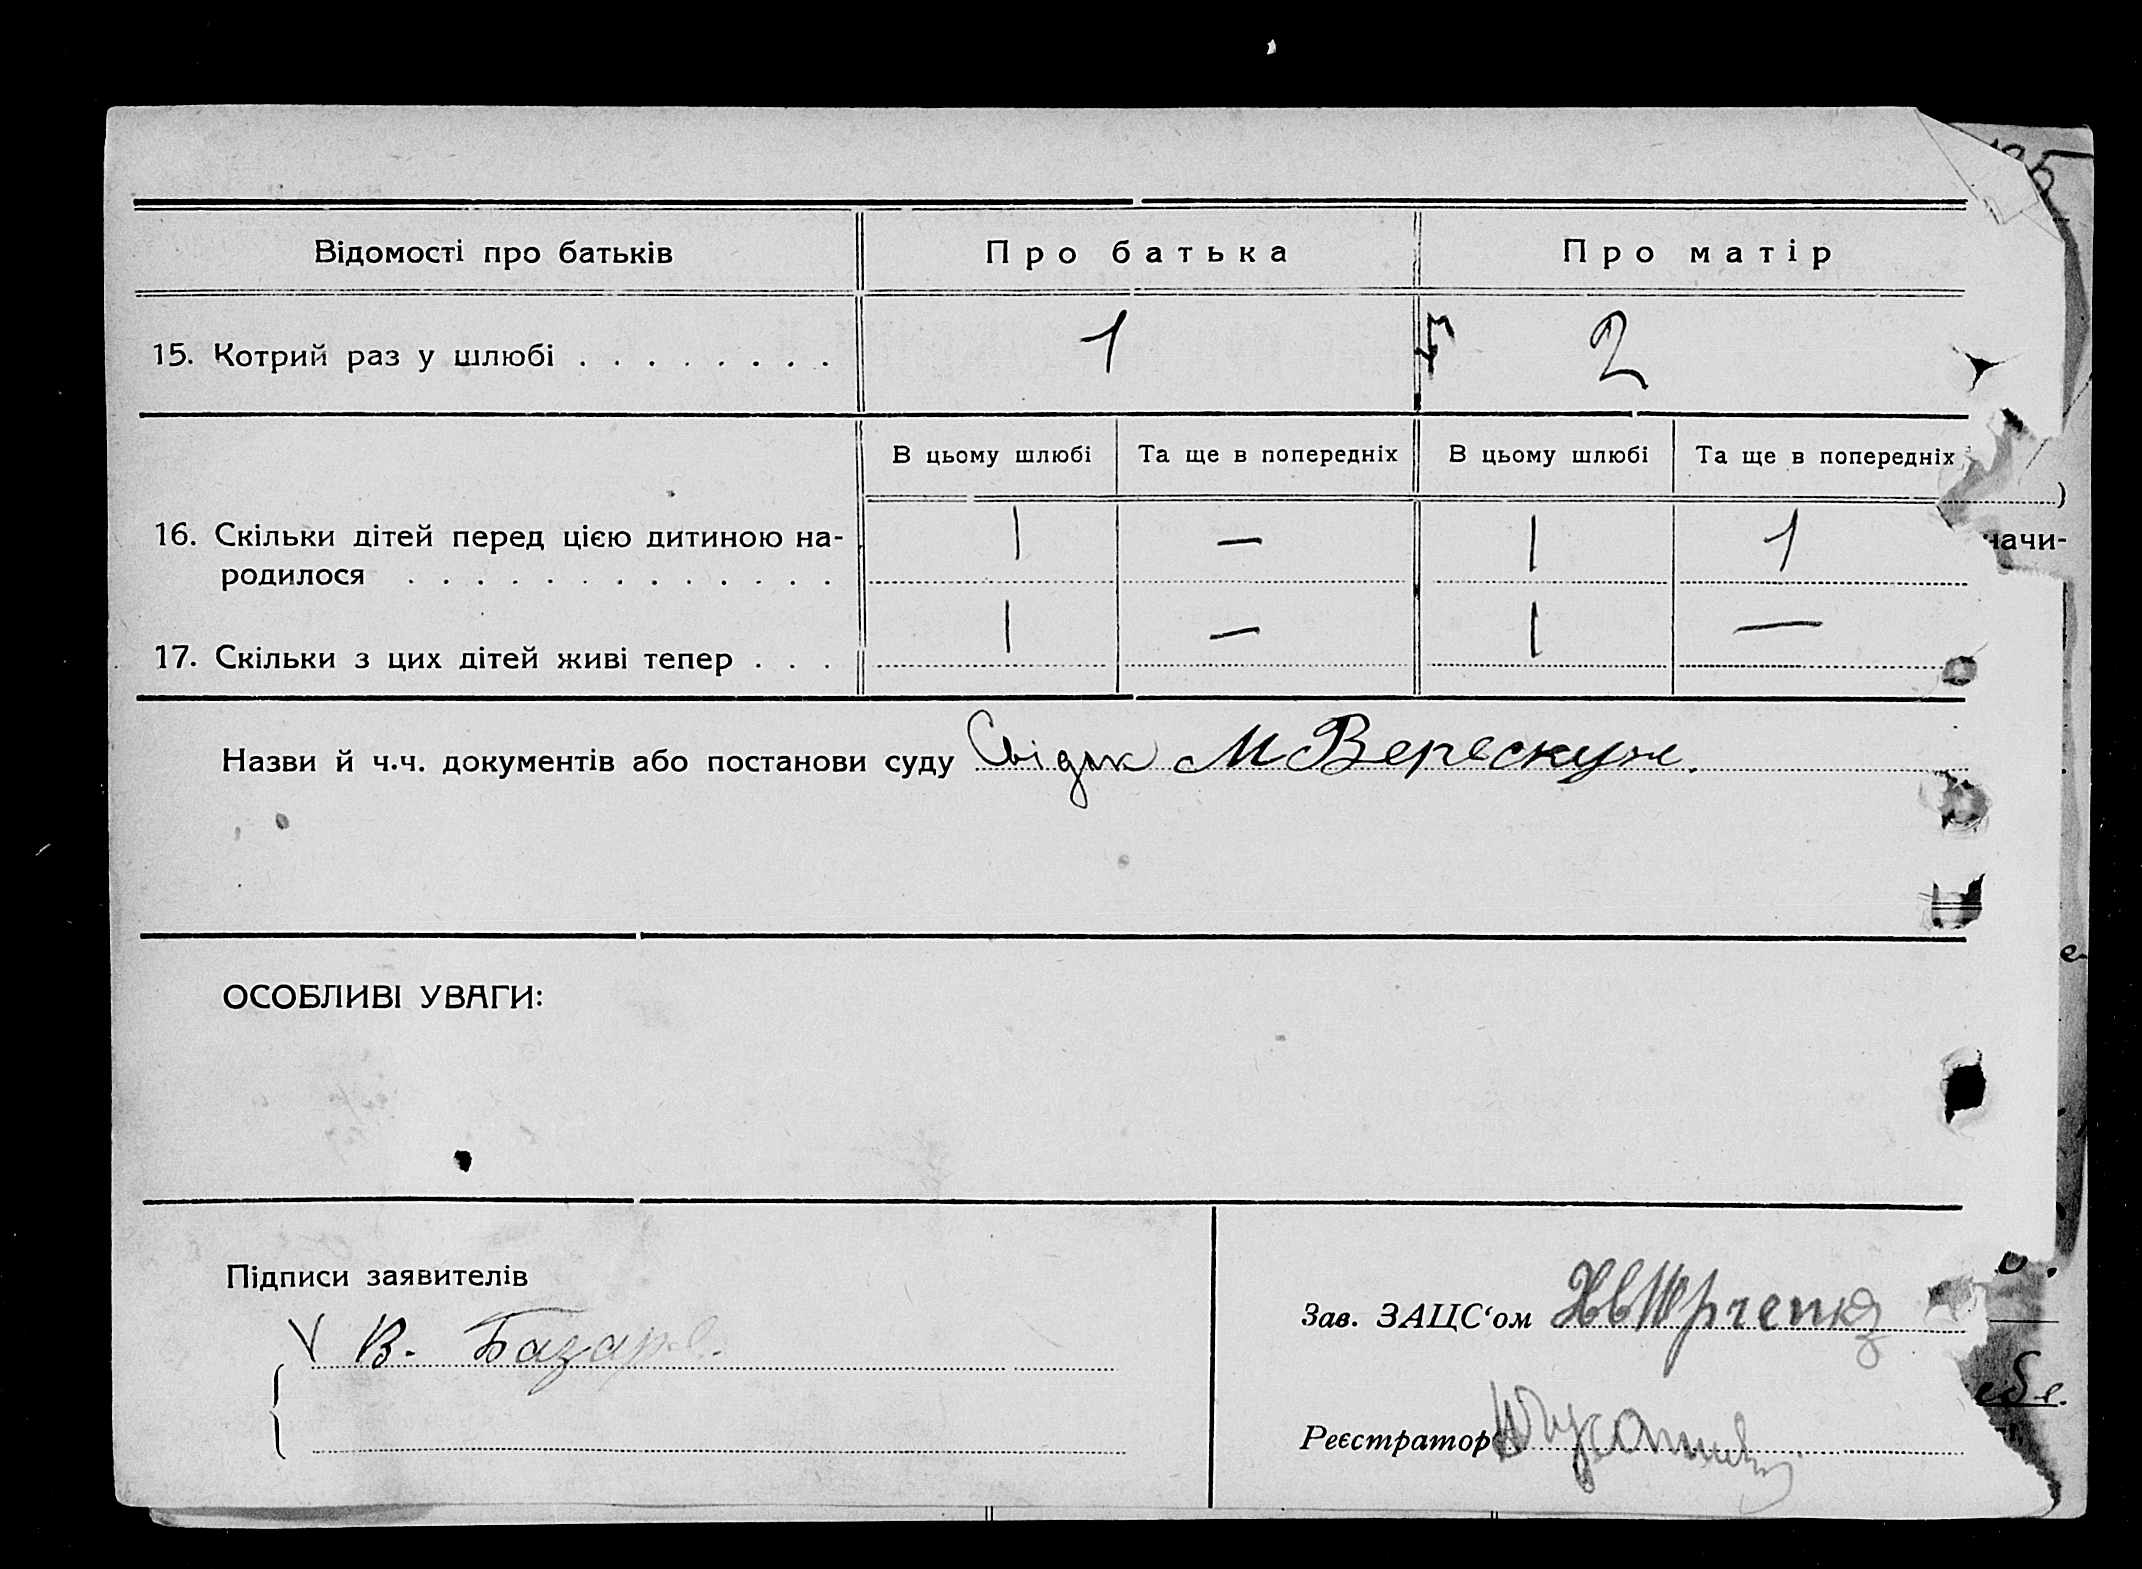 Відомості про батьків Про батька Про матір
15. Котрий раз у шлюбі . . . . . . . . 1 2
В цьому шлюбі Та ще в попередніх В цьому шлюбі Та ще в попередніх
16. Скільки дітей перед цією дитиною на- 1 — 1 1
родилося . . . . . . . . . . . . .
17. Скільки з цих дітей живі тепер . . . 1 — 1 —
Назви й ч.ч. документів або постанови суду Свідок М Верескун.
ОСОБЛИВІ УВАГИ:
Підписи заявителів
В.
Зав. ЗАЦС‘ом
Реєстратор